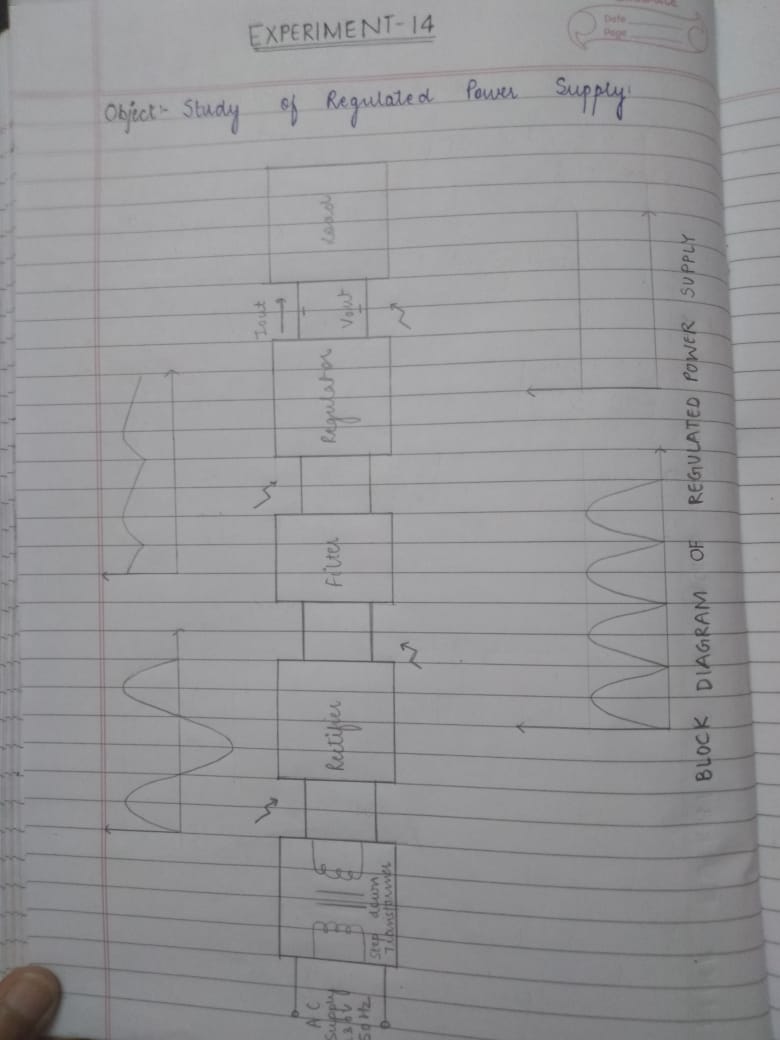 EXPERIMENT-14
Date
Page
Object:- Study of Regulated Power Supply.
A/C
Supply
230V
50Hz
Step down
Transformer
Rectifier
Filter
Regulator
Iout
Vout
Load
BLOCK DIAGRAM OF REGULATED POWER SUPPLY